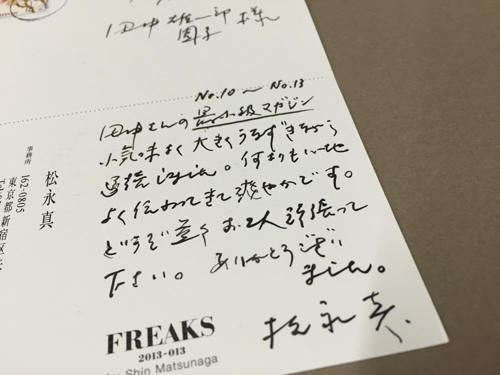 田中雄一郎 様
No.10 〜 No.13
田中さんの 小級マガジン
小気味よく 大きくうなずきながら
ました。
よく伝わってきて 爽やかです。
どうぞ益々 お2人頑張って
下さい。 ありがとうござい
ました。
松永真
松永真
事務所
162-0805
東京都新宿区
FREAKS
2013-013
Shin Matsunaga